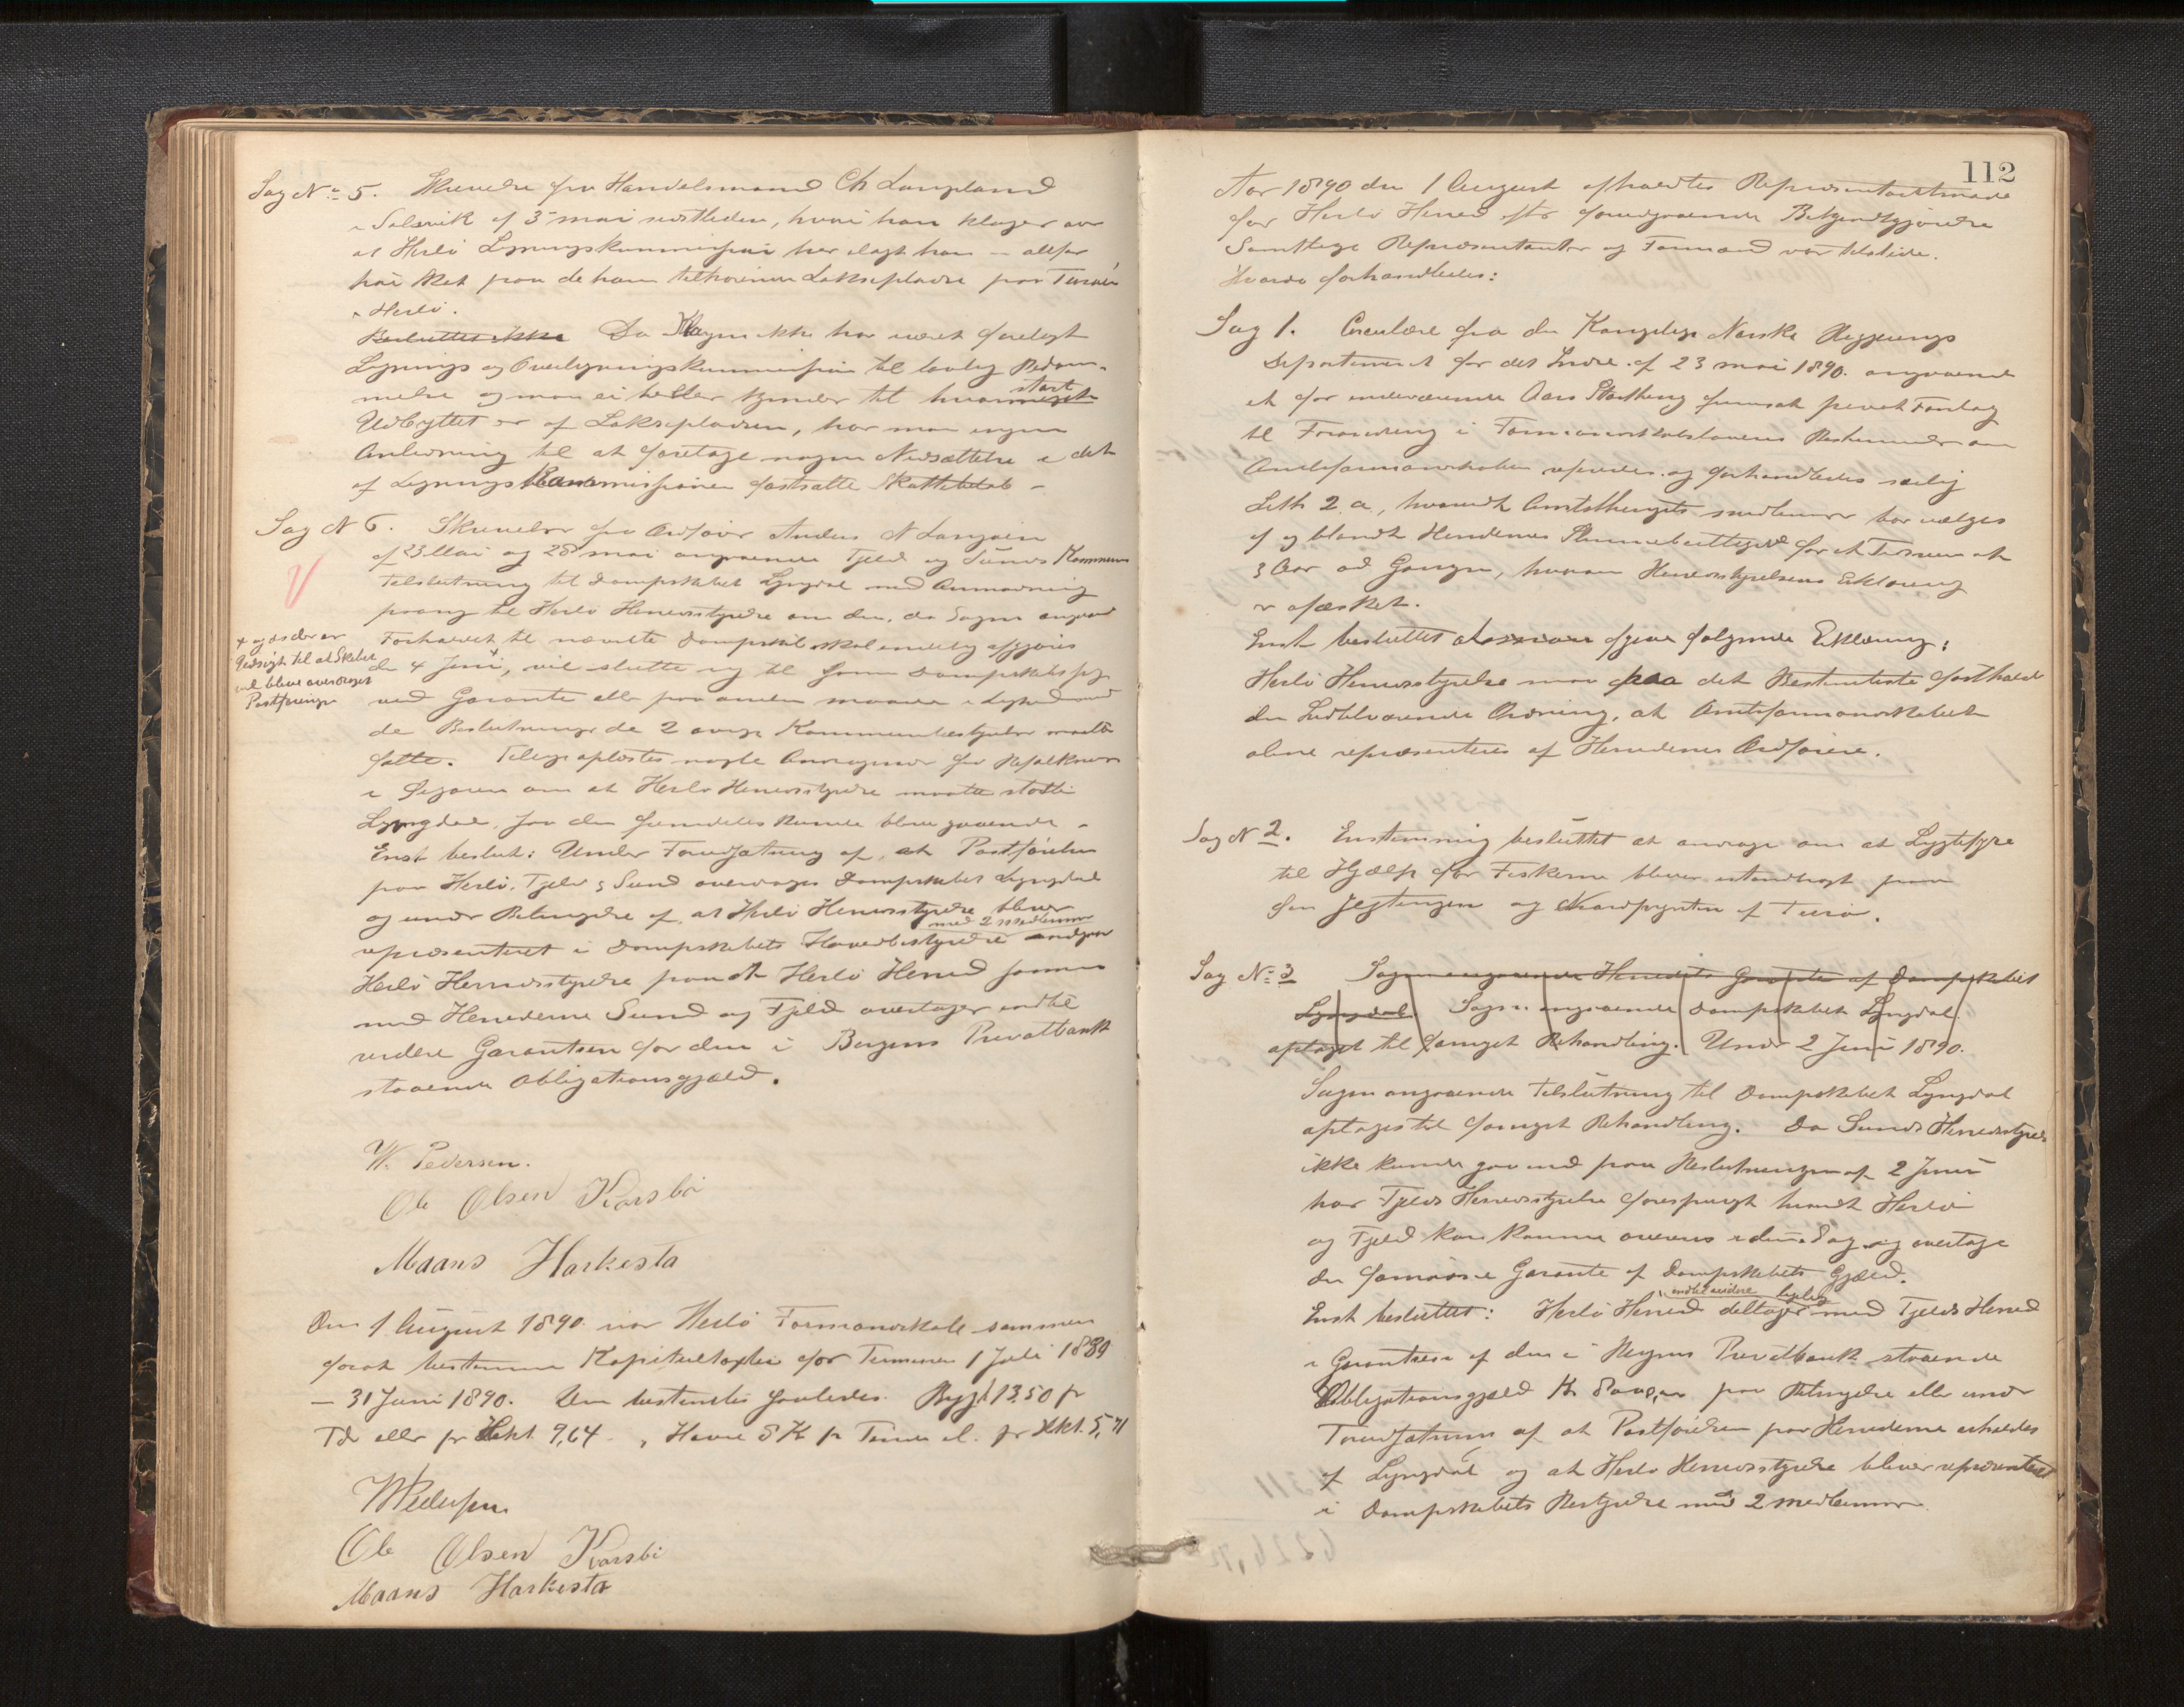 Sag No 5. Skrivelse fra Handelsmand Ch Langeland
i Solsvik af 3 mai sidstleden, hvori han klager over
at Herlø Ligningskommission har ilagt ham en altfor
høi Skat paa de ham tilhørende Laksepladse paa Turøen
i Herlø.
Besluttet ikke Da Klagen ikke har været forelagt
Lignings og Overligningskommission til lovlig Bedøm-
melse og man ei heller kjender til hvor meget stort
Udbyttet er af Laksepladsen, har man ingen
Anledning til at foretage nogen Nedsættelse i det
af Ligningskommissionen fastsatte Skattebeløb -
Sag N 6. Skrivelser fra Ordfører Anders N Langøen
af 23 Mai og 28 mai angaaende Fjeld og Sunds Kommuners
Tilslutning til Dampskibet Lyngdal med Anmodning
paany til Herlø Herredsstyrelse om den, da Sagen angaaende
Forholdet til nævnte Dampskib skal endelig afgjøres
den 4 Juni +, vil slutte sig til samme Dampskibsselskab
+ og da der er
Udsigt til at Skibet
vil blive overdraget
Postføringen
ved Garanti eller paa anden maade i Lighed med
de Beslutninger de 2 øvrige Kommunebestyrelser maatte
fatte. Tillige oplæstes nogle Andragender fra Befolkningen
i Øigaren om at Herlø Herredsstyrelse maatte støtte
Lyngdal, saa den fremdeles kunde blive gaaende -
Enst beslut: Under Forudsætning af, at Postførelsen
paa Herlø, Fjeld & Sund overdrages Dampskibet Lyngdal
og under Betingelse af, at Herlø Herredsstyrelse bliver
repræsenteret i Dampskibets Hovedbestyrelse med 2 medlemmer
Herlø Herredsstyrelse paa at Herlø Herred sammen
med Herrederne Sund og Fjeld overtager indtil
videre Garantien for den i Bergens Privatbank
staaende Obligationsgjæld.
W. Pedersen.
Ole Olsen Kvarsbø
Maans Harkestad
Den 1 August 1890 var Herlø Formandskab sammen
forat bestemme Kapitelstaxter for Terminen 1 Juli 1889
- 31 Juni 1890. Den bestemtes saaledes. Byg 13.50 pr
Td eller pr Hekt. 9,64. , Havre 8 K pr Tønde el. pr Hkt. 5,71
W Pedersen
Ole Olsen Kvarsbø
Maans Harkestad
112
Aar 1890 den 1 August afholdtes Repræsentantmøde
for Herlø Herred efter foregaaende Bekjendtgjørelse
Samtlige Repræsentanter og Formænd var tilstede.
Hvorda forhandledes:
Sag 1. Circulære fra den Kongelige Norske Regjerings
Departement for det Indre af 23 mai 1890 angaaende
et for indeværende Aars Storthing fremsat privat Forslag
til Forandring i Formandskabslovens Bestemmelser om
Amtsformandskaber refereredes og forhandledes særlig
Litr 2. a, hvorved Amtsthingets medlemmer bør vælges
af og blandt Herredernes Stemmeberettigede for et Tidsrum at
3 Aar ad Gangen, hvorom Herredsstyrelsens Erklæring
er afæsket.
Enst besluttet at afgive følgende Erklæring:
Herlø Herredsstyrelse maa paa det Bestemteste fastholde
den hidtilværende Ordning, at Amtsformandskabet
alene repræsenteres af Herredernes Ordførere.
Sag N 2. Enstemmig besluttet at andrage om at Lygtefyre
til Hjælp for Fiskerne bliver istandbragt paa
Jegtengen og Nordpynten af Turø.
Sag No 3 Sagen angaaende Herredets Garanti af Dampskibet
Lyngdal. Sagen angaaende Dampskibet Lyngdal
optaget til fornyet Behandling. Under 2 Juni 1890.
Sagen angaaende Tilslutning til Dampskibet Lyngdal
optages til fornyet Behandling. Da Sunds Herredsstyrelse
ikke kunde gaa ind paa Beslutningen af 2 Juni
har Fjelds Herredsstyrelse forespurgt hvorvidt Herlø
og Fjeld kan komme overens i denne Sag og overtage
den fornødne Garanti af Dampskibets Gjæld.
Enst besluttet: Herlø Herred deltager indtil videre ligelig med Fjelds Herred
i Garantien af den i Bergens Privatbank staaende
Obligationsgjæld Kr 8000,00 paa Betingelse eller under
Forudsætning af at Postførelsen paa Herrederne erholdes
af Lyngdal og at Herlø Herredsstyrelse bliver repræsenteret
i Dampskibets Bestyrelse med 2 medlemmer.